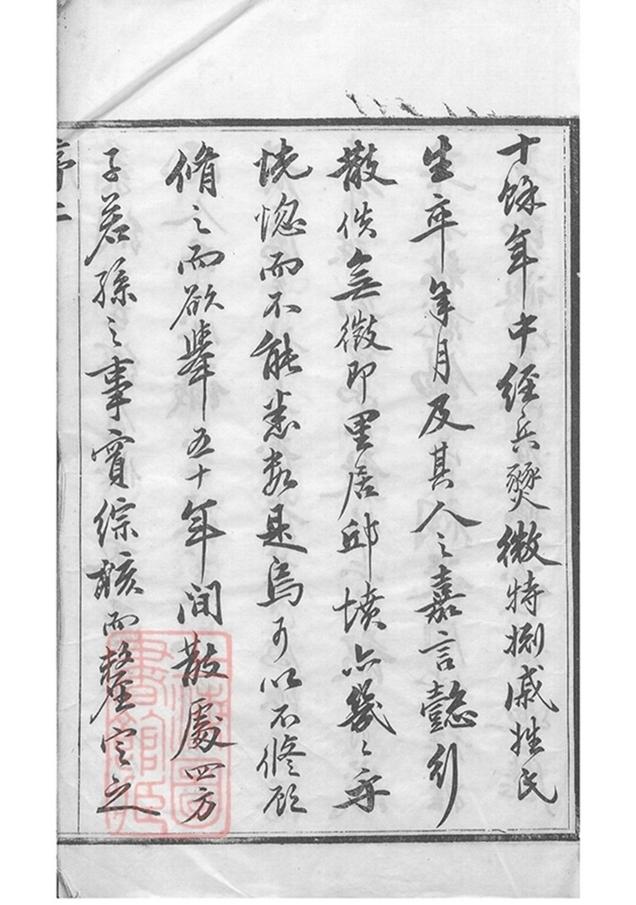 十餘年中經兵燹微特婣戚姓氏
生卒年月及其人之嘉言懿行
散佚無徵即里居邱墳亦幾〻乎
恍惚而不能悉數是烏可以不修顧
脩之而欲舉五十年間散處四方
子若孫之事實綜核而釐定之
序二